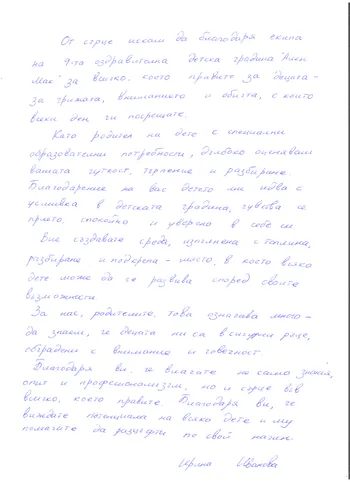 От сърце искам да благодаря екипа
на 9-та оздравителна детска градина "Ален
Мак" за всичко, което правите за децата -
за грижата, вниманието и обичта, с които
всеки ден ги посрещате.
Като родител на дете с специални
образователни потребности, дълбоко оценявам
вашата чуткост, търпение и разбиране.
Благодарение на вас детето ми идва с
усмивка в детската градина, чувства се
прието, спокойно и уверено в себе си.
Вие създавате среда, изпълнена с топлина,
разбиране и подкрепа - място, в което всяко
дете може да се развива според своите
възможности.
За нас, родителите, това означава много -
да знаем, че децата ни са в сигурни ръце,
обградени с внимание и човечност.
Благодаря ви, че влагате не само знания,
опит и професионализъм, но и сърце във
всичко, което правите. Благодаря ви, че
виждате потенциала на всяко дете и му
помагате да разцъфти по свой начин.
Ирина Иванова